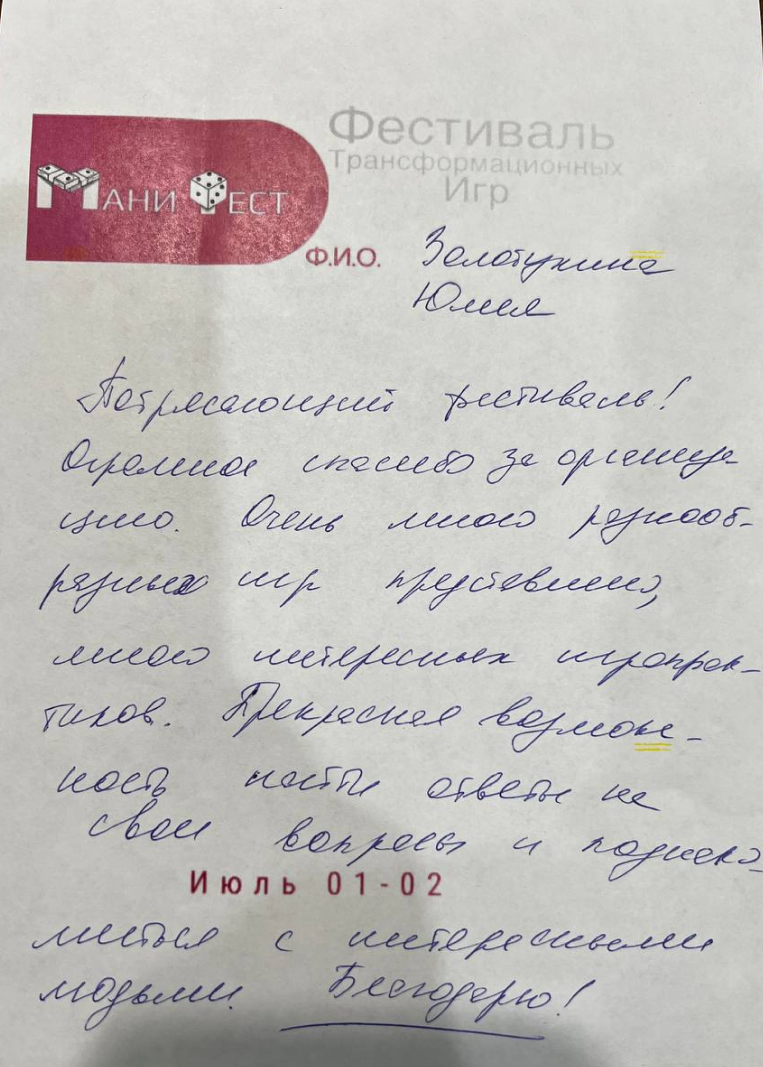 Фестиваль
Трансформационных
Игр
МАНИ ФЕСТ
Ф.И.О. Золотухина
Юлия
Потрясающий фестиваль!
Огромное спасибо за организа-
цию. Очень много разнооб-
разных игр представлено,
много интересных игропрак-
тиков. Прекрасная возмож-
ность найти ответы на
свои вопросы и познако-
Июль 01-02
миться с интересными
людьми. Благодарю!